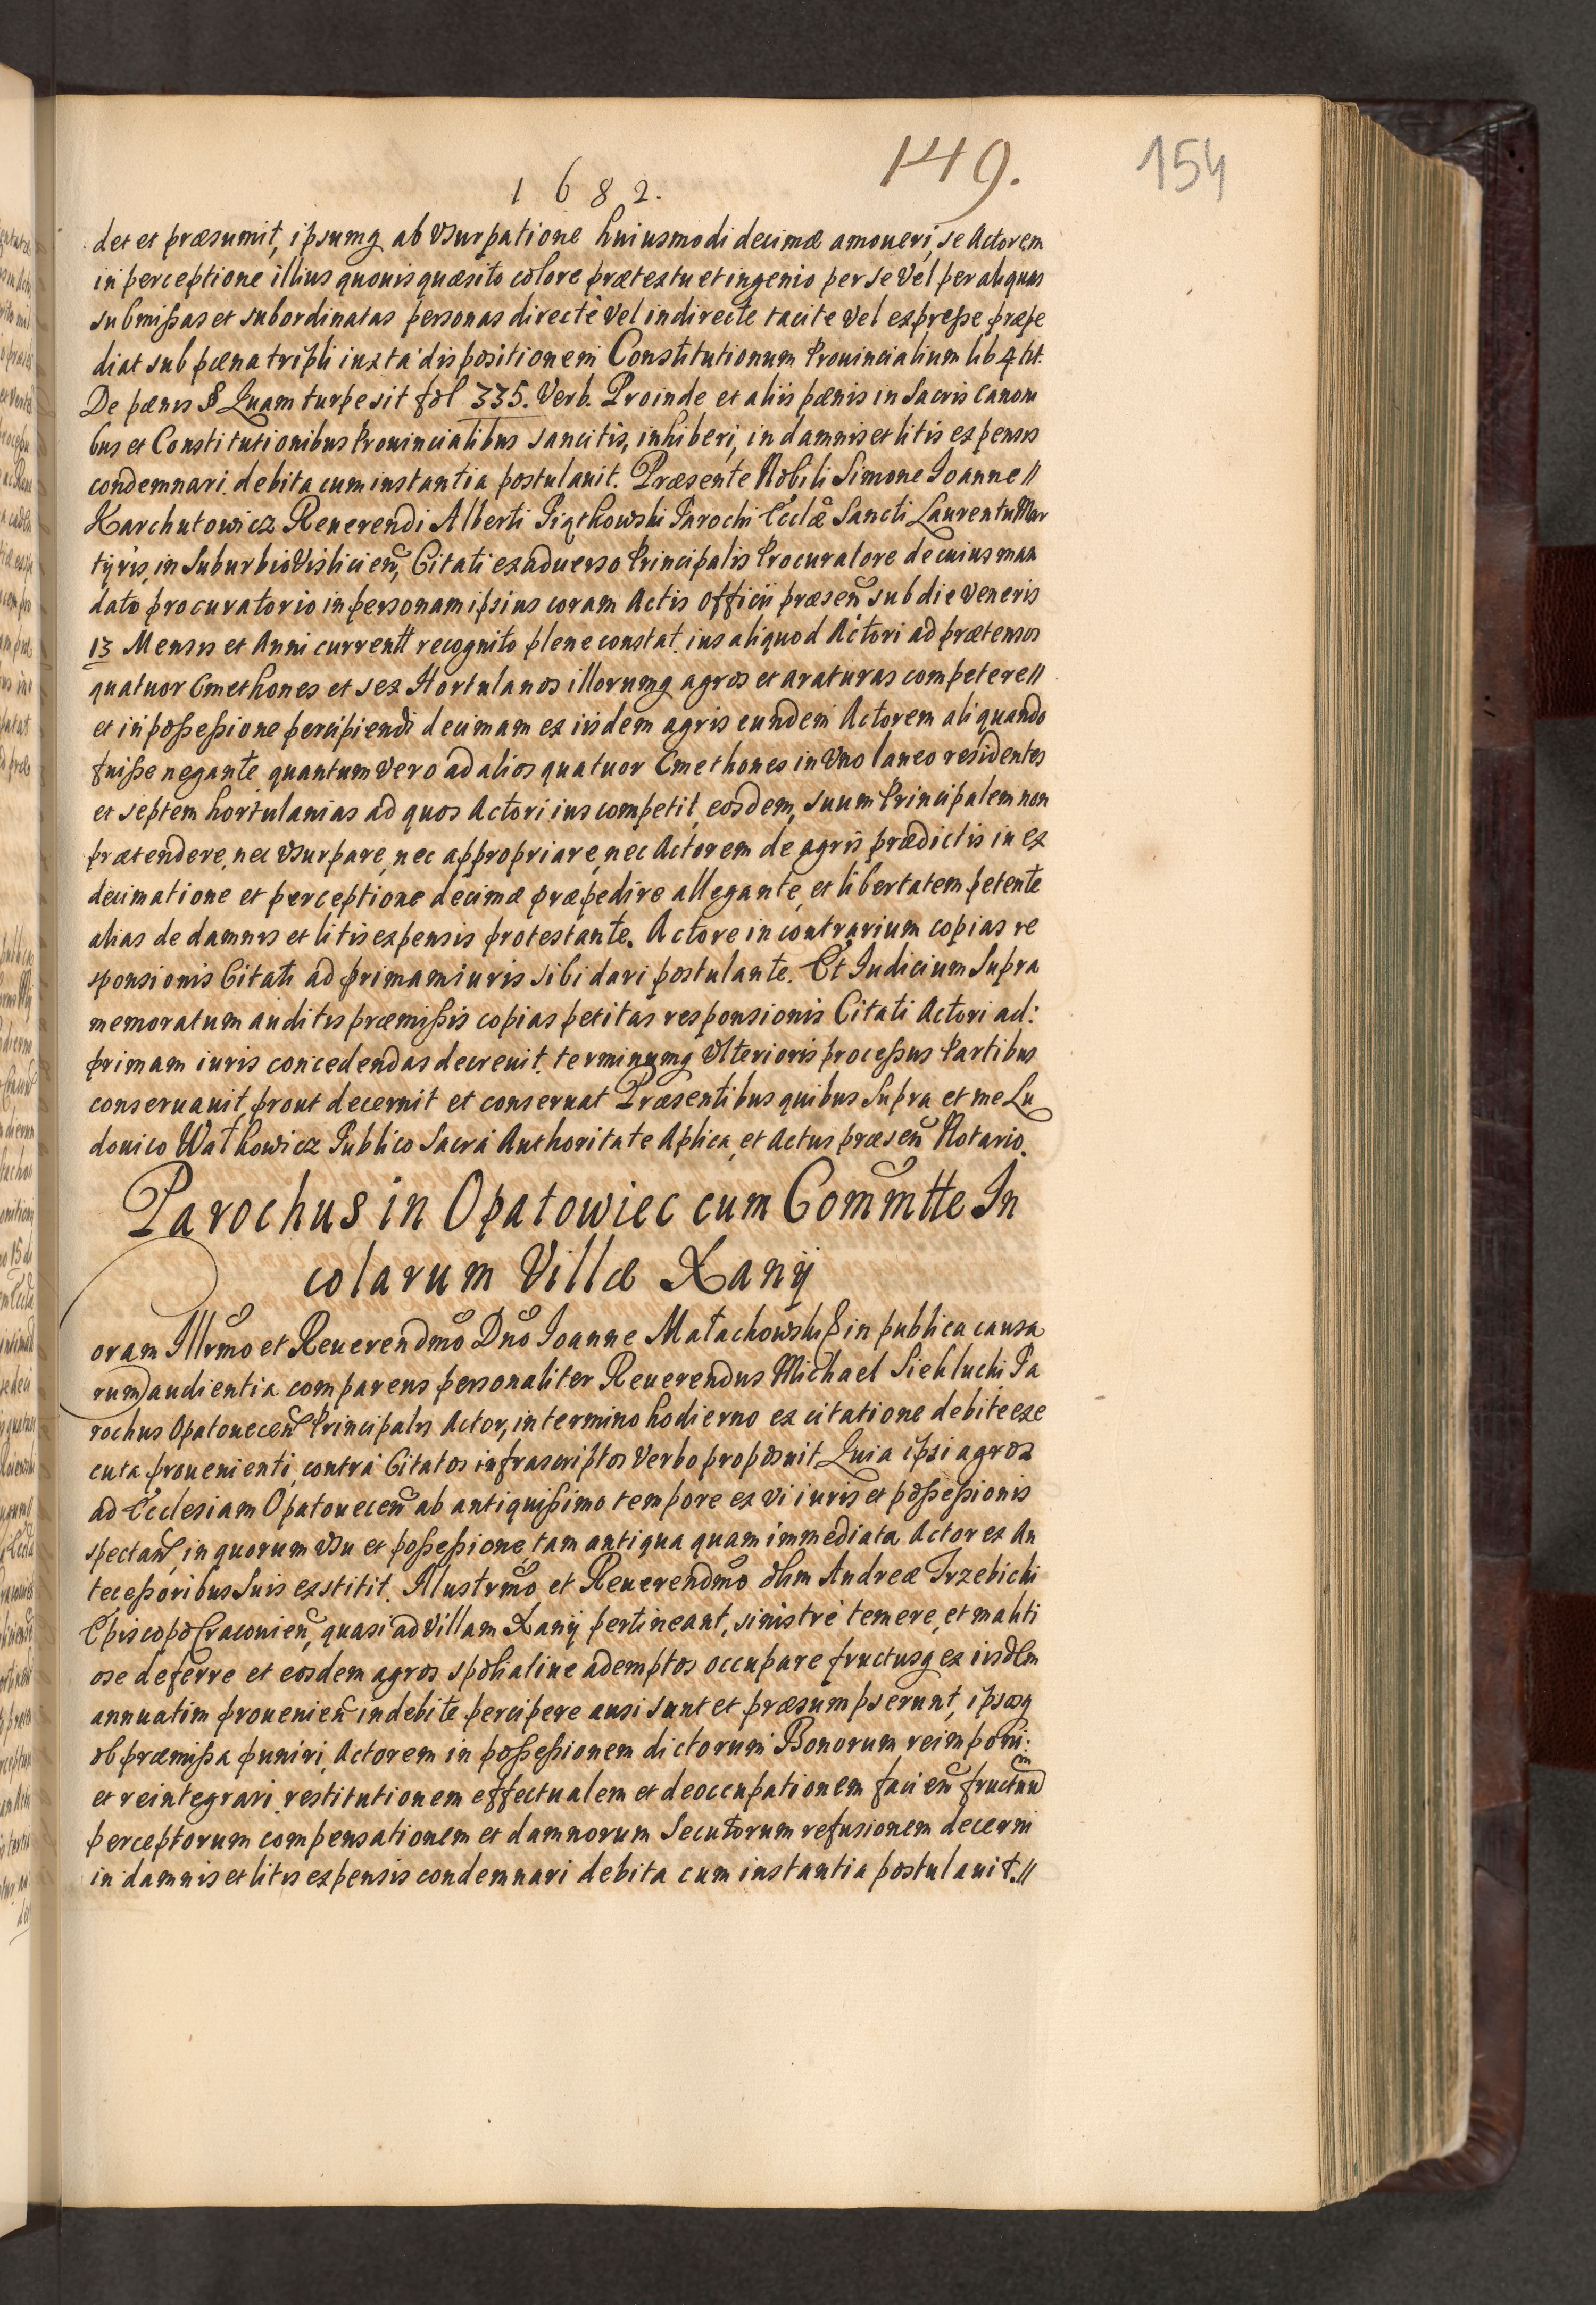 149.
154
1682.
det et præsumit, ipsumq ab Vsurpatione huiusmodi decimæ amoueri, se Actorem
in perceptione illius quouis quæsito colore prætextu et ingenio per se Vel per aliquas
submißas et subordinatas personas directè Vel indirectè tacite Vel expreße præpe
diat sub pœna tripli iuxta dispositionem Constitutionum Prouincialium lib 4 tit.
De pœnis § Quam turpe sit fol 335. Verb. Proinde et aliis pœnis in Sacris Canoni
bus et Constitutionibus Prouincialibus sancitis, inhiberi, in damnis et litis expensis
condemnari debita cum instantia postulauit. Præsente Nobili Simone Joanne //
Karchutowicz Reuerendi Alberti Piątkowski Parochi Eccłæ Sancti Laurentii Mar
tyris, in Suburbio Vislicieñ, Citati ex aduerso Principalis Procuratore de cuius man
dato procuratorio in personam ipsius coram Actis Officii præseñ sub die Veneris
13 Mensis et Anni currentt recognito plene constat. ius aliquod Actori ad prætensos
quatuor Cmethones et sex Hortulanos illorumq agros et araturas competere //
et in poßeßione percipiendi decimam ex iisdem agris eundem Actorem aliquando
fuiße negante quantum Vero ad alios quatuor Cmethones in Vno laneo residentes
et septem hortulanias ad quos Actori ius competit, eosdem, suum Principalem non
prætendere, nec Vsurpare, nec appropriare, nec Actorem de agris prædictis in ex
decimatione et perceptione decimæ præpedire allegante, et libertatem petente
alias de damnis et litis expensis protestante. Actore in contrarium copias re
sponsionis Citati ad primam iuris sibi dari postulante. Et Judicium Supra
memoratum auditis præmißis copias petitas responsionis Citati Actori ad:
primam iuris concedendas decreuit. terminumq Vlterioris proceßus Partibus
conseruauit, prout decernit et conseruat Præsentibus quibus Supra et me Lu
douico Wałkowicz Publico Sacra Authoritate Aplica, et Actus præseñ Notario.
Parochus in Opatowiec cum Committe In
colarum Villæ Xany
oram Illrmo et Reuerendmo Dno Joanne Małachowski ꝑ in publica causa
rum audientia comparens personaliter Reuerendus Michael Siekłucki Pa
rochus Opatoueceñ Principalis Actor, in termino hodierno ex citatione debite exe
cuta prouenienti contra Citatos infrascriptos Verbo proposuit Quia ipsi agros
ad Ecclesiam Opatoueceñ ab antiquißimo tempore ex vi iuris et poßeßionis
spectañ, in quorum Vsu et poßeßione, tam antiqua quam immediata Actor ex An
teceßoribus Suis exstitit. Illustrmo et Reuerendmo olim Andreæ Trzebicki
Episcopo Cracouieñ, quasi ad Villam Xany pertineant, sinistrè temere, et maliti
ose deferre et eosdem agros spoliatiue ademptos occupare fructusq ex iisdem
annuatim prouenieñ indebite percipere ausi sunt et præsumpserunt, ipsosq
ob præmißa puniri, Actorem in poßeßionem dictorum Bonorum reimponi:
et reintegrari restitutionem effectualem et deoccupationem facieñ fructuum
perceptorum compensationem et damnorum Secutorum refusionem decerni
in damnis et litis expensis condemnari debita cum instantia postulauit. //